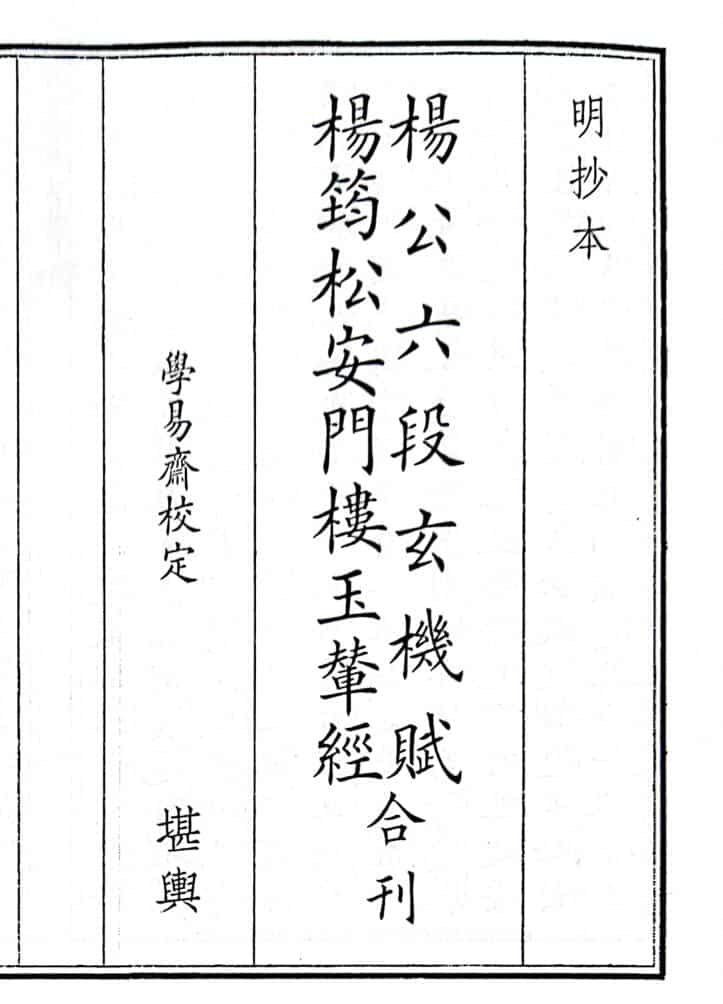 明抄本
楊公六段玄機賦
楊筠松安門樓玉輦經
合刊
學易齋校定
堪輿